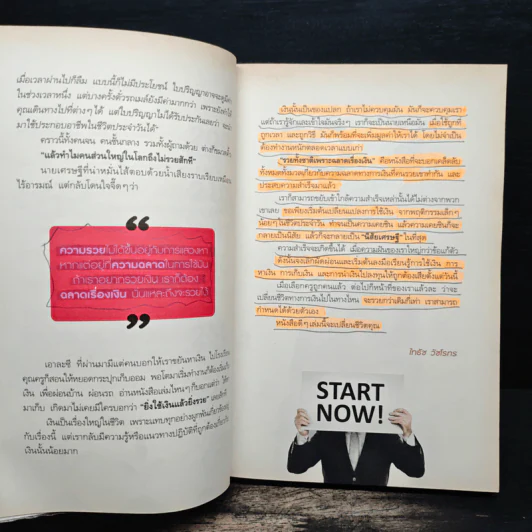 เมื่อเวลาผ่านไปก็ลืม แบบนี้ก็ไม่มีประโยชน์ ใบปริญญาอาจจะดูมีค่า
ในช่วงเวลาหนึ่ง แต่บางครั้งตั๋วรถเมล์ยังมีค่ามากกว่า เพราะยังพา
คุณเดินทางไปที่ต่างๆ ได้ แต่ใบปริญญาไม่ได้รับประกันเลยว่า
มาใช้ประกอบอาชีพในชีวิตประจำวันได้"
คราวนี้ทั้งคนจน คนชั้นกลาง รวมทั้งผู้ถามด้วย ต่างก็
"แล้วทำไมคนส่วนใหญ่ในโลกถึงไม่รวยสักที"
นายเศรษฐีที่น่าหมั่นไส้ตอบด้วยน้ำเสียงราบเรียบเหมือน
ไร้อารมณ์ แต่กลับโดนใจจี๊ดๆว่า
“
ความรวยไม่ได้ขึ้นอยู่กับการแสวงหา
หากแต่อยู่ที่ความฉลาดในการใช้เงิน
ถ้าเราอยากรวยเงิน เราก็ต้อง
ฉลาดเรื่องเงิน นั่นแหละถึงจะรวยได้
”
เอาละซี ที่ผ่านมามีแต่คนบอกให้เราขยันหาเงิน ไปโรงเรียน
คุณครูก็สอนให้หยอดกระปุกเก็บออม พอโตมาเริ่มทำงานก็ต้อง
เงิน เพื่อผ่อนบ้าน ผ่อนรถ อ่านหนังสือเล่มไหนๆ ก็บอกแต่ว่า
มาเก็บ เกิดมาไม่เคยมีใครบอกว่า "ยิ่งใช้เงินแล้วยิ่งรวย"
เงินเป็นเรื่องใหญ่ในชีวิต เพราะแทบทุกอย่างผูกพันเกี่ยวข้อง
กับเรื่องนี้ แต่เรากลับมีความรู้หรือแนวทางปฏิบัติที่ถูกต้องเกี่ยวกับ
เงินนั้นน้อยมาก
เงินนั้นเป็นของแปลก ถ้าเราไม่ควบคุมมัน มันก็จะควบคุมเรา
แต่ถ้าเรารู้จักและเข้าใจมันจริงๆ เราก็จะเป็นนายเหนือมัน เมื่อใช้ถูกที่
ถูกเวลา และถูกวิธี มันก็พร้อมที่จะเพิ่มมูลค่าให้เราได้ โดยไม่จำเป็น
ต้องทำงานหนักตลอดเวลาแบบเก่า
"รวยทั้งชาติเพราะฉลาดเรื่องเงิน" คือหนังสือที่จะบอกเคล็ดลับ
ทั้งหมดทั้งมวลเกี่ยวกับความฉลาดทางการเงินที่คนรวยเขาทำกัน และ
ประสบความสำเร็จมาแล้ว
เราก็สามารถขยับเข้าใกล้ความสำเร็จเหล่านั้นได้ไม่ต่างจากพวก
เขาเลย ขอเพียงเริ่มต้นเปลี่ยนแปลงการใช้เงิน จากพฤติกรรมเล็กๆ
น้อยๆ ในชีวิตประจำวัน ทำจนเป็นความเคยชิน แล้วความเคยชินก็จะ
กลายเป็นนิสัย แล้วก็จะกลายเป็น "นิสัยเศรษฐี" ในที่สุด
ความสำเร็จจะเกิดขึ้นได้ เมื่อความฝันของเราใหญ่กว่าข้อแก้ตัว
ดังนั้นจงเลิกผัดผ่อนและเริ่มต้นลงมือเรียนรู้การใช้เงิน การ
หาเงิน การเก็บเงิน และการนำเงินไปลงทุนให้ถูกต้องเสียตั้งแต่วันนี้
เมื่อเลือกครูถูกคนแล้ว ต่อไปก็หน้าที่ของเราแล้วละ ว่าจะ
เปลี่ยนชีวิตทางการเงินไปในทางไหน จะรวยกว่าเดิมก็เท่า เราสามารถ
กำหนดได้ด้วยตัวเอง
หนังสือดีๆ เล่มนี้จะเปลี่ยนชีวิตคุณ
START
NOW!